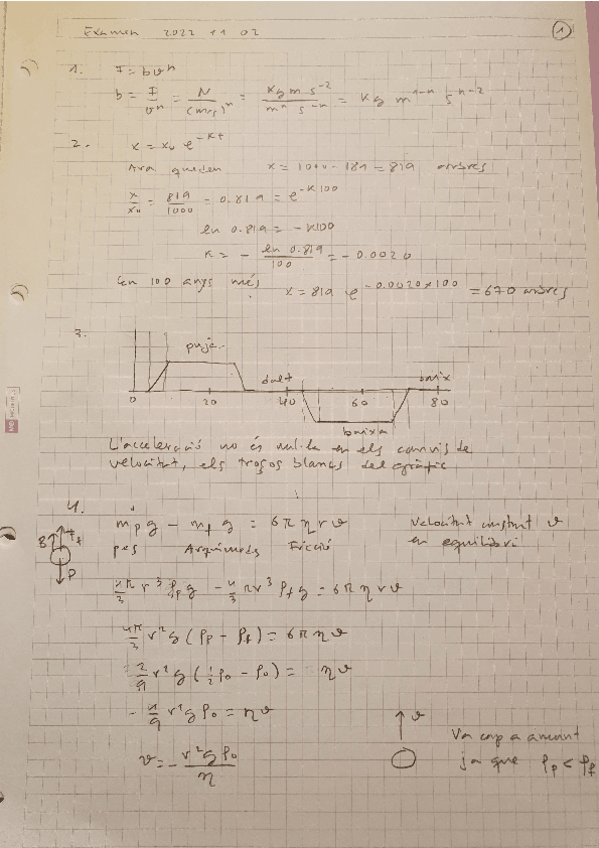 Examen 2022 11 02
1
1. I = b v^n
b = I/v^n = N/(m/s)^n = kg m s^-2/m^n s^-n = kg m^1-n s^n-2
2. x = x0 e^-kt
Ara queden x = 1000 - 181 = 819 arbres
x/x0 = 819/1000 = 0.819 = e^-k100
ln 0.819 = -k100
k = - ln 0.819/100 = -0.0020
En 100 anys més x = 819 e^-0.0020x100 = 670 arbres
3.
puja
dalt
baix
0 20 40 60 80
baixa
L'acceleració no és nul·la en els canvis de
velocitat, els troços blancs del gràfic
4.
mp g - mf g = 6π η r v Velocitat constant v
pes Arquímedes Fricció en equilibri
B Ff
P
4π/3 r^3 ρp g - 4/3 π r^3 ρf g = 6π η r v
4π/3 r^2 g (ρp - ρf) = 6π η v
2/9 r^2 g (1/2 ρ0 - ρ0) = η v
- 1/9 r^2 g ρ0 = η v
v = - r^2 g ρ0/η
v
Va cap a amunt
ja que ρp < ρf